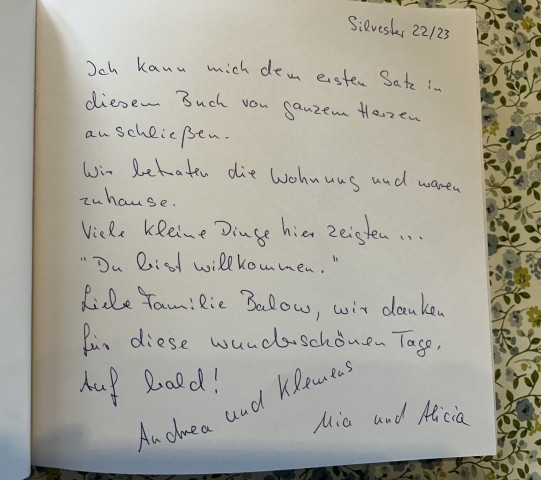 Silvester 22/23
Ich kann mich dem ersten Satz in
diesem Buch von ganzem Herzen
anschließen.
Wir betraten die Wohnung und waren
zuhause.
Viele kleine Dinge hier zeigten...
"Du bist willkommen."
Liebe Familie Balow, wir danken
für diese wunderschönen Tage.
Auf bald!
Andrea und Klemens
Mia und Alicia